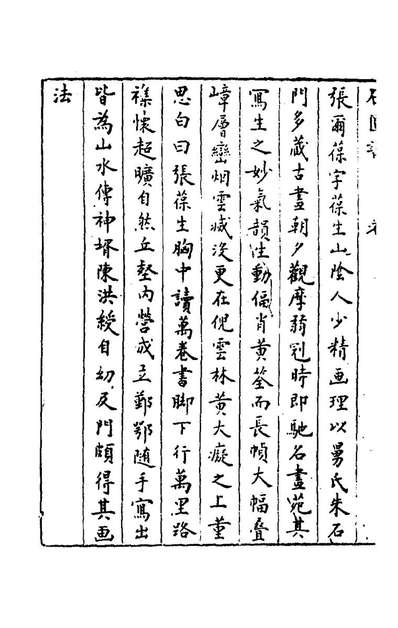 張爾葆字葆生山陰人少精画理以舅氏朱石
門多藏古畫朝夕觀摩弱冠時即馳名畫苑其
寫生之妙氣韻生動偪肖黄筌而長幀大幅疊
嶂層巒烟雲滅没更在倪雲林黄大癡之上董
思白曰張葆生胸中讀萬卷書脚下行萬里路
襟懷超曠自然丘壑内營成立鄞鄂随手寫出
皆為山水傳神壻陳洪綬自幼及門頗得其画
法